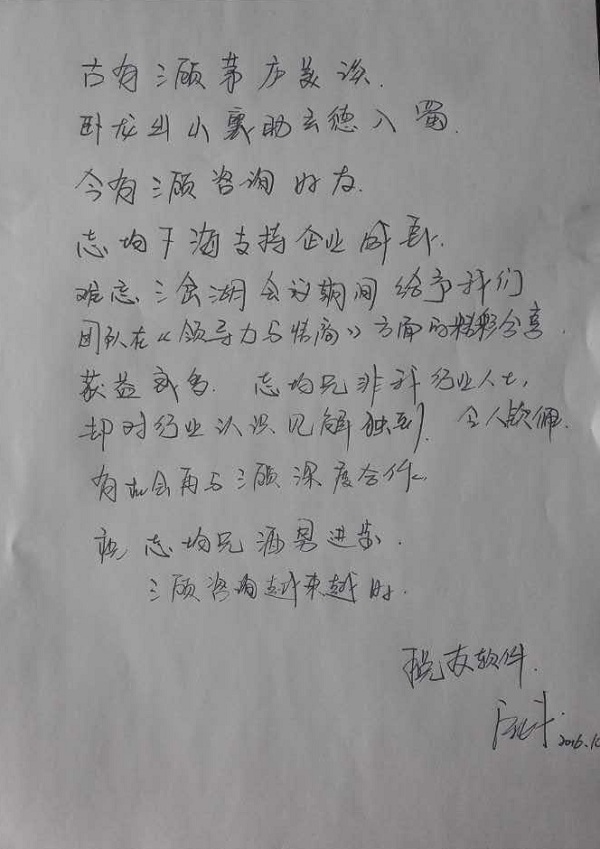 古有三顾茅庐美谈.
卧龙出山襄助玄德入蜀.
今有三顾咨询好友.
志均下海支持企业成长.
难忘三金湖会议期间给予我们
团队在《领导力与情商》方面的精彩分享.
获益或多. 志均兄非我行业人士,
却对行业认识见解独到, 令人钦佩.
有机会再与三顾深度合作,
祝 志均兄 酒男进步.
三顾咨询越来越好.
税友软件.
2016.10